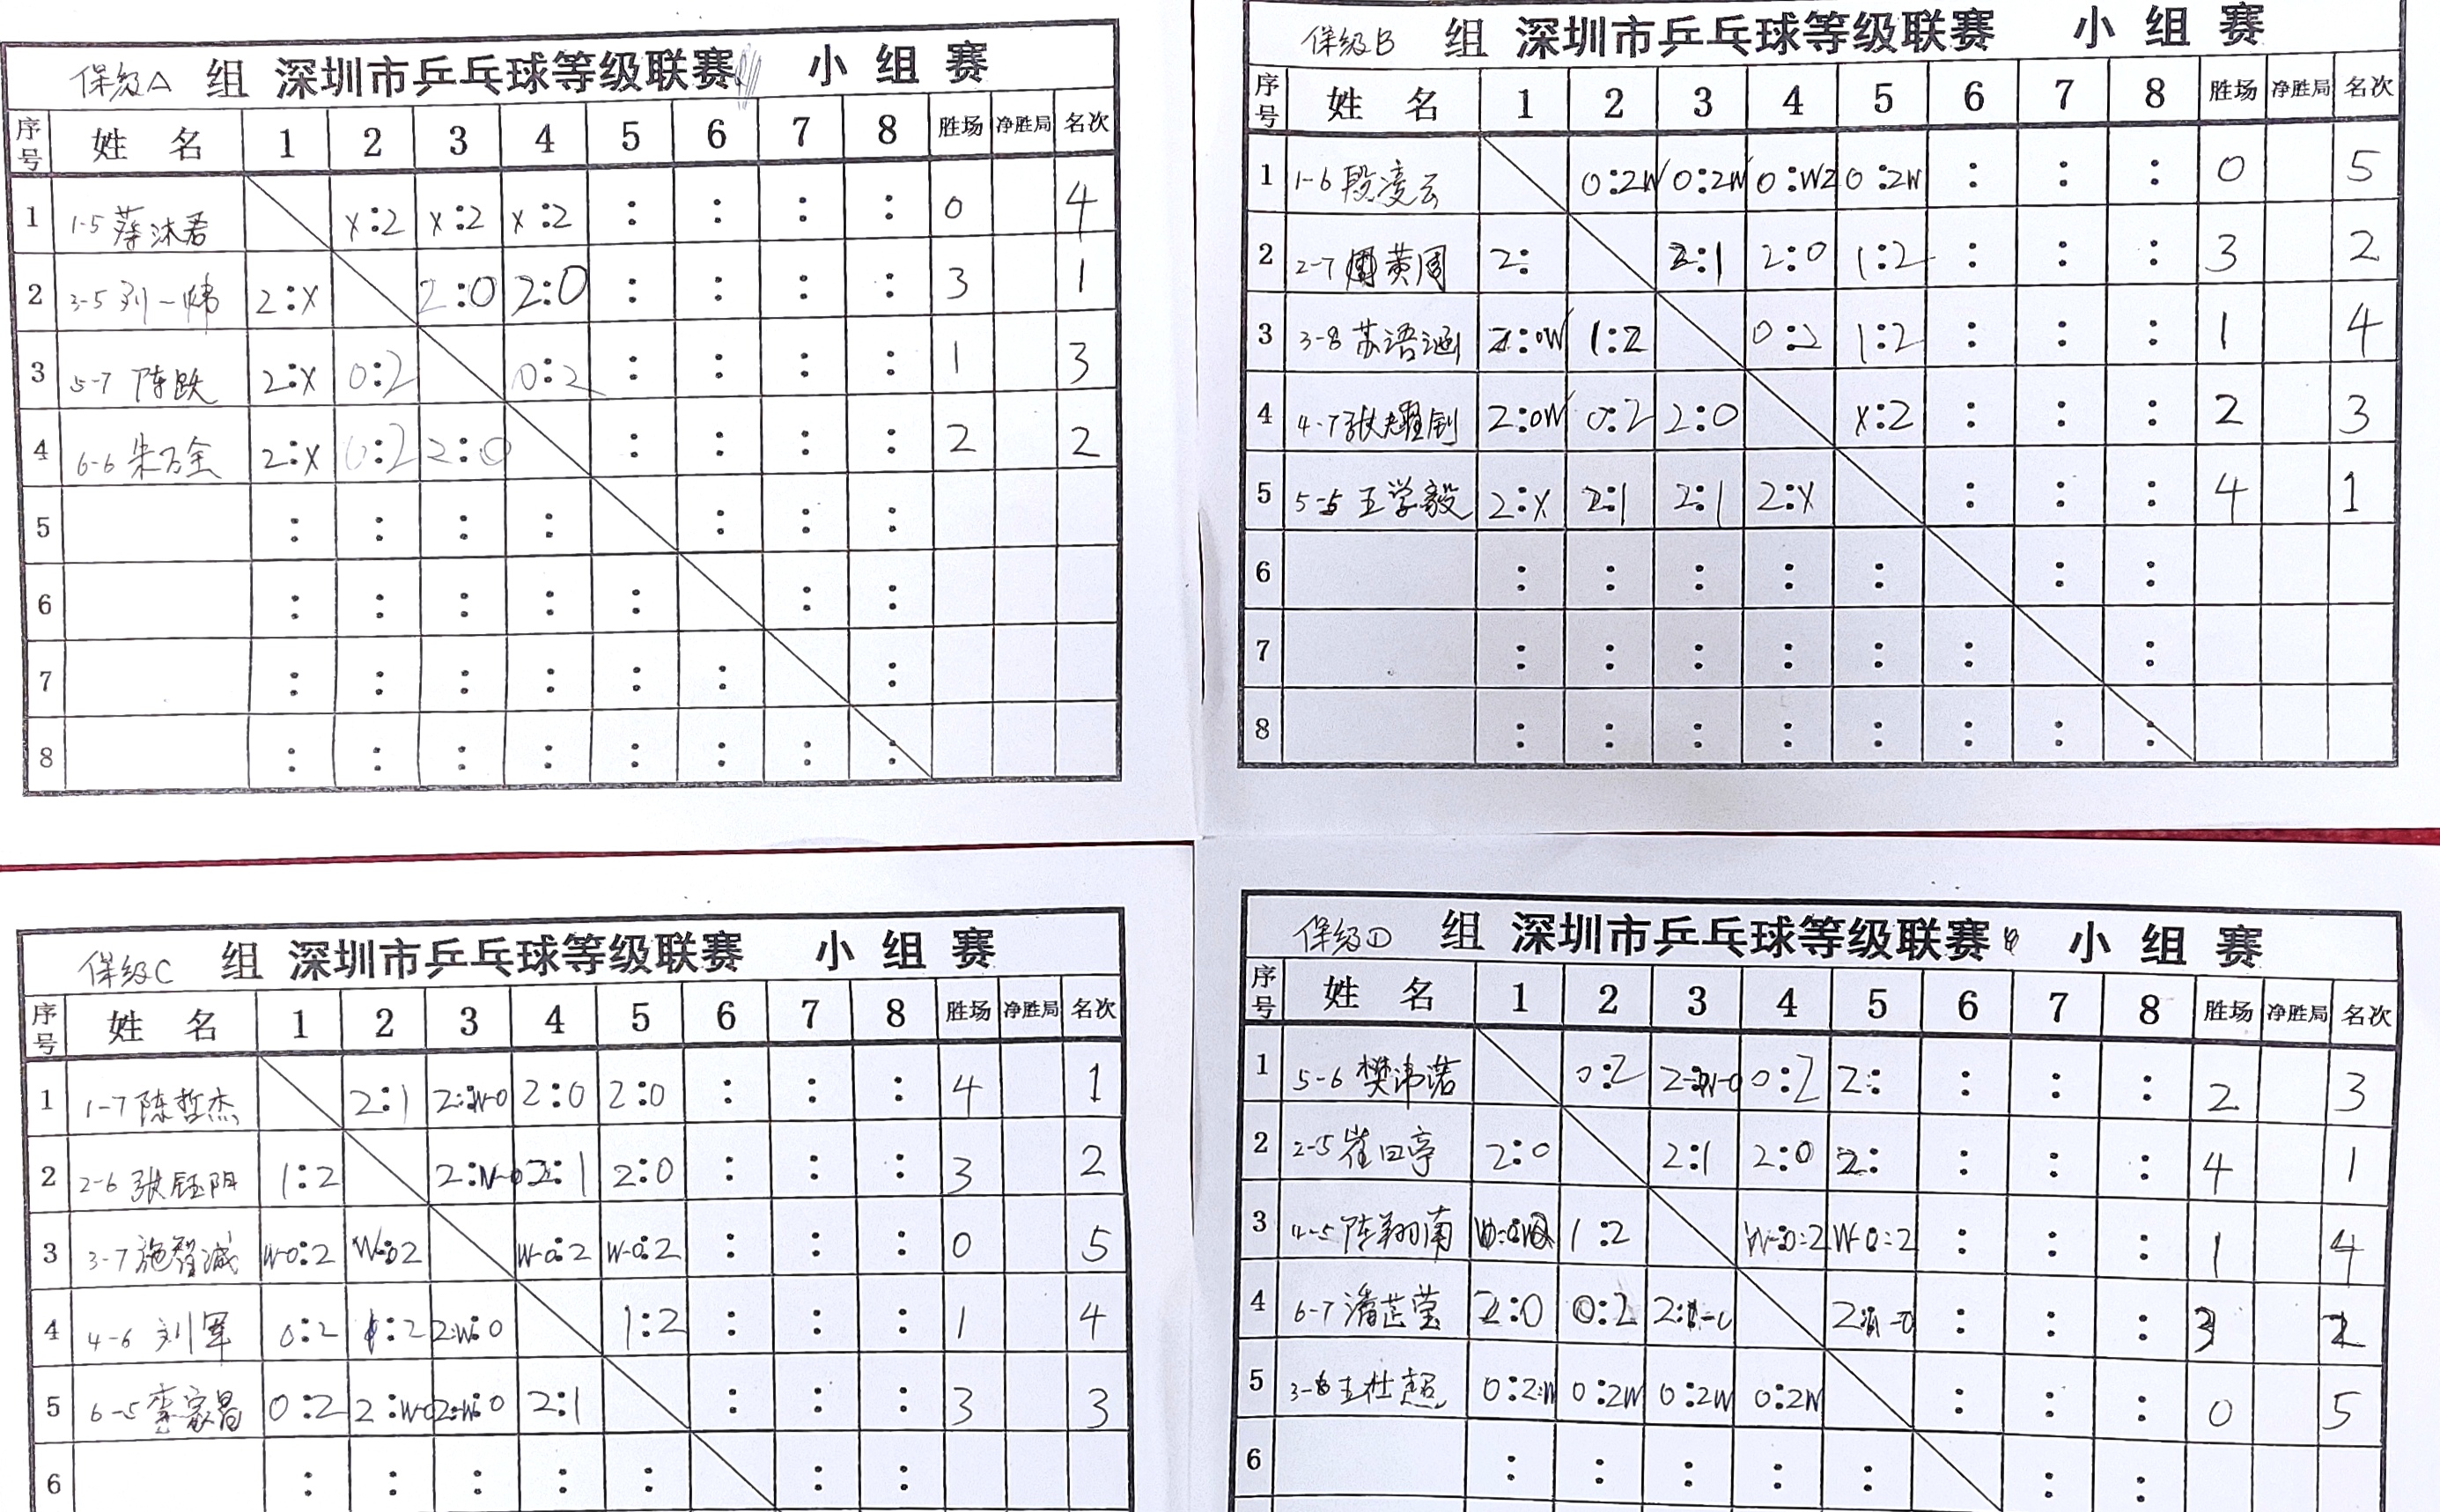 保级A 组 深圳市乒乓球等级联赛 小组赛
序号 姓名 1 2 3 4 5 6 7 8 胜场 净胜局 名次
1 1-5 x:2 x:2 x:2 : : : : 0 4
2 3-5 刘一 2:x 2:0 2:0 : : : : 3 1
3 5-7 陈跃 2:x 0:2 0:2 : : : : 1 3
4 6-6 朱万全 2:x 0:2 2:0 : : : : 2 2
5 : : : : : : :
6 : : : : : : :
7 : : : : : : :
8 : : : : : : : :
保级B 组 深圳市乒乓球等级联赛 小组赛
序号 姓名 1 2 3 4 5 6 7 8 胜场 净胜局 名次
1 1-6 段凌云 0:2W 0:2W 0:W2 0:2W : : : 0 5
2 2-7 黄周 2: 2:1 2:0 1:2 : : : 3 2
3 3-8 苏语涵 2:0W 1:2 0:2 1:2 : : : 1 4
4 4-7 张耀钊 2:0W 0:2 2:0 x:2 : : : 2 3
5 5-5 王学毅 2:x 2:1 2:1 2:x : : : 4 1
6 : : : : : : :
7 : : : : : : :
8 : : : : : : : :
保级C 组 深圳市乒乓球等级联赛 小组赛
序号 姓名 1 2 3 4 5 6 7 8 胜场 净胜局 名次
1 1-7 陈哲杰 2:1 2:W-0 2:0 2:0 : : : 4 1
2 2-6 张钰阳 1:2 2:W-0 2:1 2:0 : : : 3 2
3 3-7 施智诚 W-0:2 W-0:2 W-0:2 W-0:2 : : : 0 5
4 4-6 刘军 0:2 1:2 2:W:0 1:2 : : : 1 4
5 6-5 李家昌 0:2 2:W-0 2:W:0 2:1 : : : 3 3
6 : : : : : : :
保级D 组 深圳市乒乓球等级联赛 小组赛
序号 姓名 1 2 3 4 5 6 7 8 胜场 净胜局 名次
1 5-6 樊沛诺 0:2 2:W-0 0:2 2: : : : 2 3
2 2-5 崔日亭 2:0 2:1 2:0 2: : : : 4 1
3 4-5 陈翔南 1:2 W-0:2 W-0:2 : : : 1 4
4 6-7 潘芷莹 2:0 0:2 2:W-0 2:W-0 : : : 3 2
5 3-6 王杜超 0:2:W 0:2W 0:2W 0:2W : : : 0 5
6 : : : : : : :